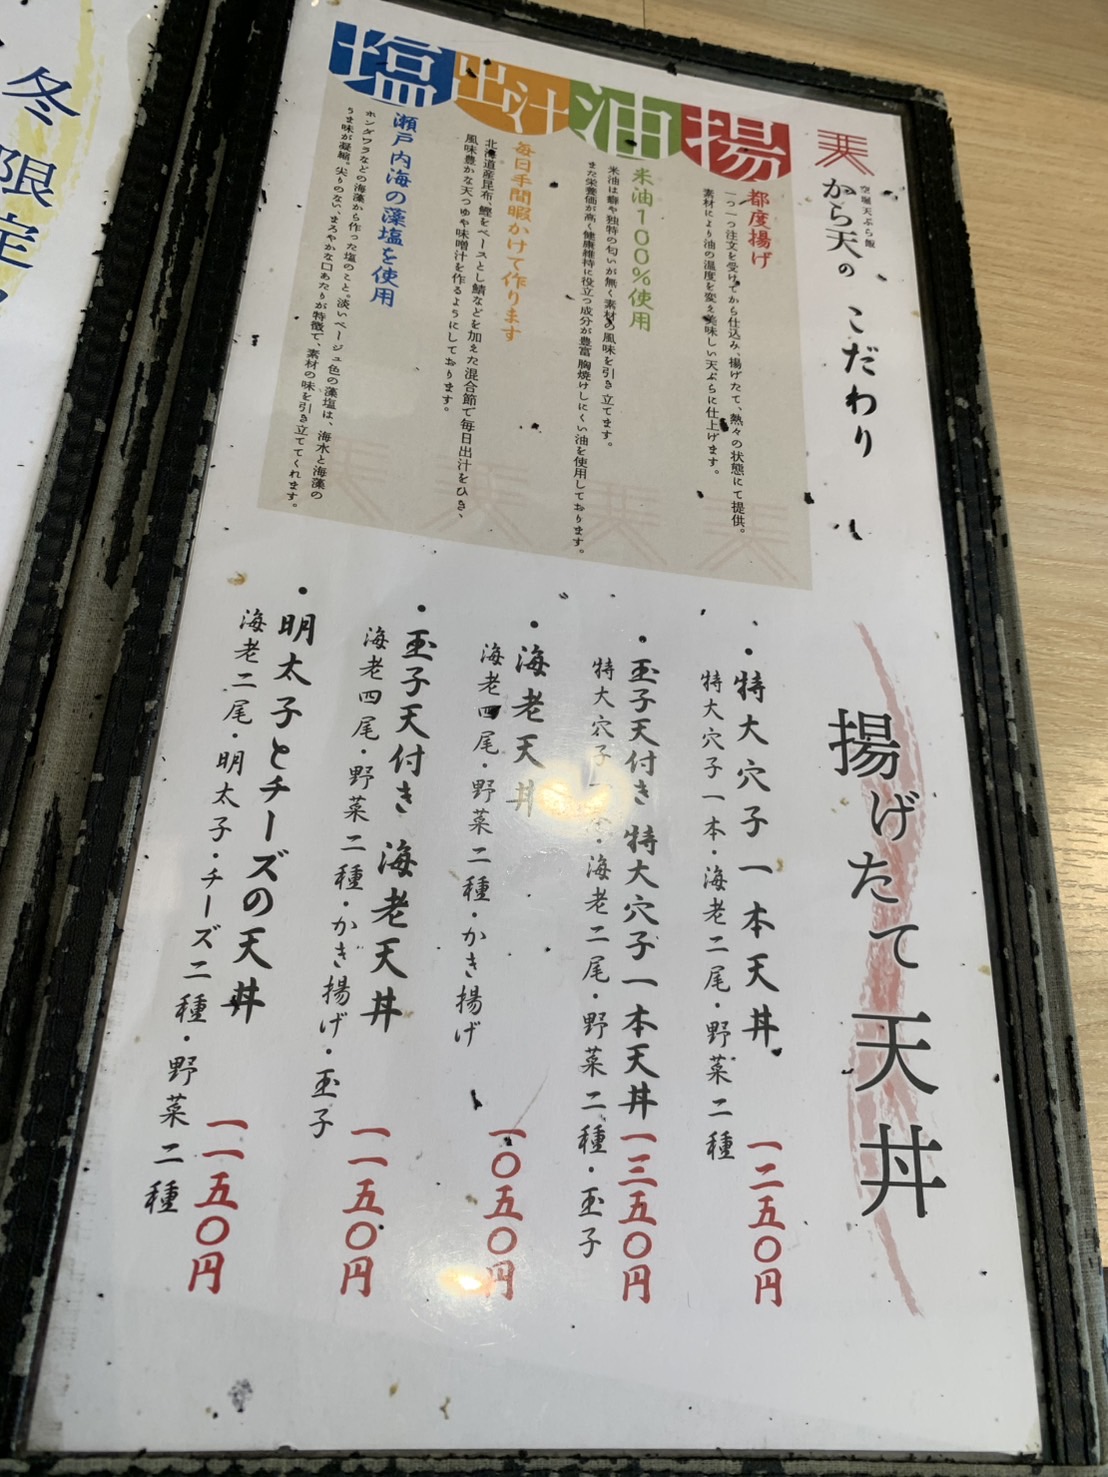 空堀天ぷら飯
から天の こだわり
揚
都度揚げ
一つ一つ注文を受けてから仕込み、揚げたて、熱々の状態にて提供。
素材により油の温度を変え美味しい天ぷらに仕上げます。
油
米油100%使用
米油は癖や独特の匂いが無く素材の風味を引き立てます。
また栄養価が高く健康維持に役立つ成分が豊富 胸焼けしにくい油を使用しております。
出汁
毎日手間暇かけて作ります
北海道産昆布、鰹をベースとし鯖などを加えた混合節で毎日出汁をひき、
風味豊かな天つゆや味噌汁を作るようにしております。
塩
瀬戸内海の藻塩を使用
ホンダワラなどの海藻から作った塩のこと、淡いベージュ色の藻塩は、海水と海藻の
うま味が凝縮。尖りのない、まろやかな口あたりが特徴で、素材の味を引き立ててくれます。
揚げたて天丼
・特大穴子一本天丼 一二五〇円
特大穴子一本・海老二尾・野菜二種
・玉子天付き 特大穴子一本天丼 一三五〇円
特大穴子一本・海老二尾・野菜二種・玉子
・海老天丼 一〇五〇円
海老四尾・野菜二種・かき揚げ
・玉子天付き 海老天丼 一一五〇円
海老四尾・野菜二種・かき揚げ・玉子
・明太子とチーズの天丼 一一五〇円
海老二尾・明太子・チーズ二種・野菜二種
冬限定